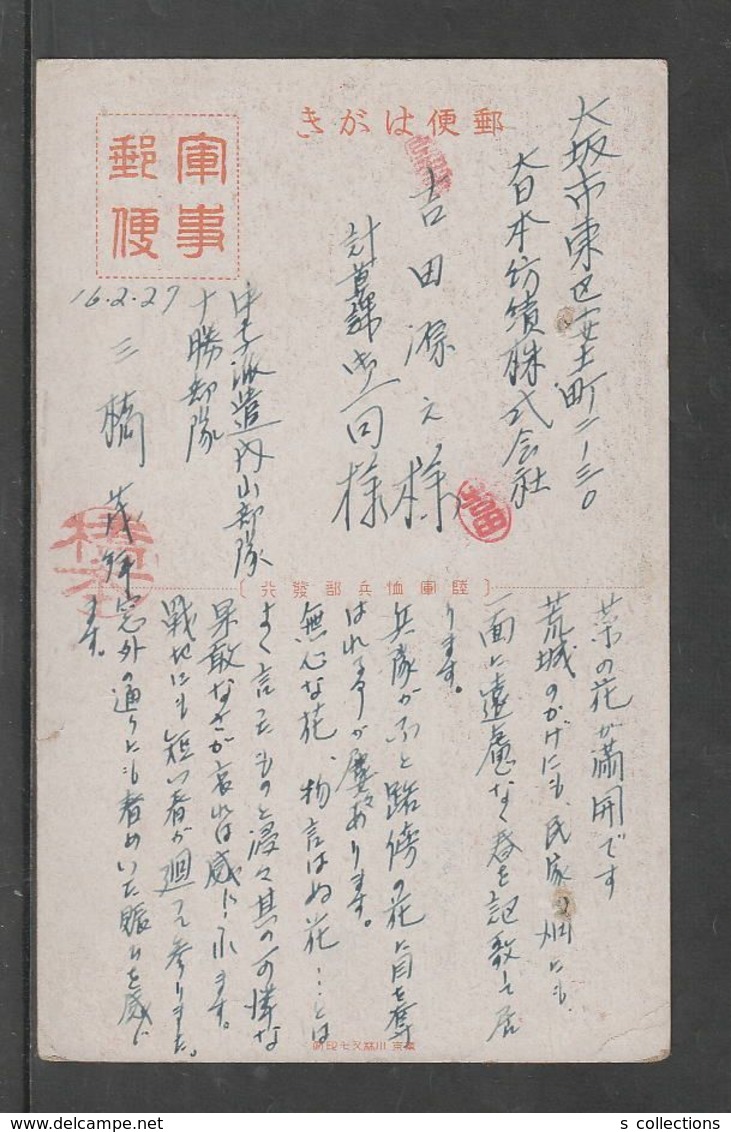 郵便はがき
軍事
郵便
大坂市東区安土町二ノ三〇
大日本紡績株式会社
吉田源之様
計算課御一同様
中支派遣内山部隊
十勝部隊
三橋茂
16.2.27
吉田
陸軍恤兵部發行
菜の花が満開です
荒城のかげにも、民家の畑にも、
一面に遠慮なく春を記教して居
ります。
兵隊がふと路傍の花に目を奪
はれる事が屡々あります。
無心な花、物言はぬ花…とは
よく言つたものと浸々其の可憐な
果敢なさが哀れは感じられます。
戦地にも短い春が廻つて参りました。
窓外の通りにも春めいた賑ひを感じ
ます。
s collections